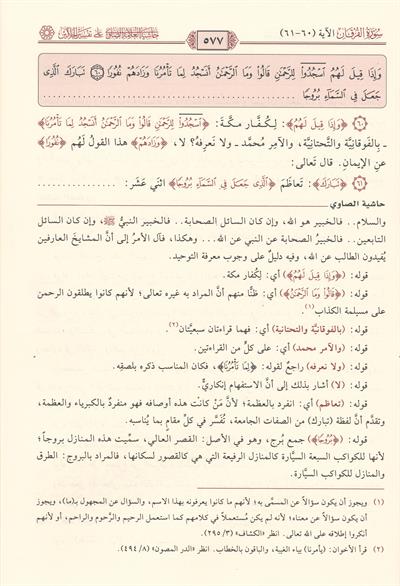 سُورَةُ الفُرْقَان الآية (٦٠-٦١)
٥٧٧
حاشية العلامة الصاوي على تفسير الجلالين
وَإِذَا قِيلَ لَهُمُ ٱسْجُدُوا۟ لِلرَّحْمَٰنِ قَالُوا۟ وَمَا ٱلرَّحْمَٰنُ أَنَسْجُدُ لِمَا تَأْمُرُنَا وَزَادَهُمْ نُفُورًا ۩ ٦٠ تَبَارَكَ ٱلَّذِى
جَعَلَ فِى ٱلسَّمَآءِ بُرُوجًا
٦٠ ﴿وَإِذَا قِيلَ لَهُمُ﴾: لِكُفَّار مكَّةَ: ﴿ٱسْجُدُوا۟ لِلرَّحْمَٰنِ قَالُوا۟ وَمَا ٱلرَّحْمَٰنُ أَنَسْجُدُ لِمَا تَأْمُرُنَا﴾
ـ بِالفَوقانِيَّة والتَّحتانيَّة، والآمِر مُحمَّد ـ ولا نَعرِفهُ؟ لا، ﴿وَزَادَهُمْ﴾ هذا القولُ لَهُم ﴿نُفُورًا﴾
عن الإيمانِ. قال تَعالى:
٦١ ﴿تَبَارَكَ﴾: تَعاظَمَ ﴿ٱلَّذِى جَعَلَ فِى ٱلسَّمَآءِ بُرُوجًا﴾ اثنَي عَشَرَ:
حاشية الصاوي
والسلام.. فالخبير هو الله، وإن كان السائل الصحابة.. فالخبير النبيُّ ﷺ، وإن كان السائل
التابعين.. فالخبيرُ الصحابة عن النبي عن الله... وهكذا، فآل الأمرُ إلى أن المشايخ العارفين
يُفيدون الطالب عن الله، وفيه دليلٌ على وجوب معرفة التوحيد.
قوله: (﴿وَإِذَا قِيلَ لَهُمُ﴾) أي: لكُفار مكة.
قوله: (﴿قَالُوا۟ وَمَا ٱلرَّحْمَٰنُ﴾) أي: ظنًّا منهم أنَّ المراد به غيره تعالى؛ لأنهم كانوا يطلقون الرحمن
على مسيلمة الكذاب(١).
قوله: (بالفوقانيَّة والتحتانية) أي: فهما قراءتان سبعيَّتان(٢).
قوله: (والآمر محمد) أي: على كلٍّ من القراءتين.
قوله: (ولا نعرفه) راجعٌ لقوله: ﴿لِمَا تَأْمُرُنَا﴾، فكان المناسب ذكره بلصقِه.
قوله: (لا) أشار بذلك إلى أنَّ الاستفهام إنكاريٌّ.
قوله: (تعاظم) أي: انفرد بالعظمة؛ لأنَّ مَن كانت هذه أوصافه فهو منفردٌ بالكبرياء والعظمة،
وتقدَّم أنَّ لفظة (تبارك) من الصفات الجامعة، تُفسَّر في كلِّ مقامٍ بما يُناسبه.
قوله: (﴿بُرُوجًا﴾) جمع بُرج، وهو في الأصل: القصر العالي، سمِّيت هذه المنازل بروجاً؛
لأنها للكواكب السبعة السيَّارة كالمنازل الرفيعة التي هي كالقصور لسكانها، فالمراد بالبروج: الطرق
والمنازل للكواكب السيَّارة.
(١) ويجوز أن يكون سؤالاً عن المسمَّى به؛ لأنهم ما كانوا يعرفونه بهذا الاسم، والسؤال عن المجهول بـ(ما)، ويجوز
أن يكون سؤالاً عن معناه؛ لأنه لم يكن مُستعملاً في كلامهم كما استعمل الرحيم والرَّحوم والراحم، أو لأنهم
أنكروا إطلاقه على الله تعالى. انظر «الكشاف» (٣/ ٢٩٥).
(٢) قرأ الأخوان: (يأمرنا) بياء الغيبة، والباقون بالخطاب. انظر «الدر المصون» (٨/ ٤٩٤).